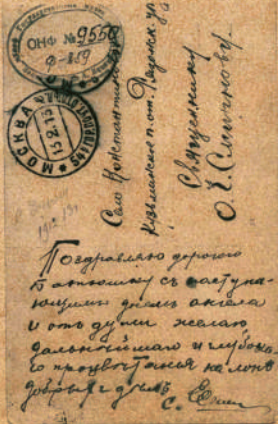 ОНФ № 9550
ф-859
МОСКВА
15.2.13
Село Константиново
Кузьминское п. от. Рязанск. у.
Священнику
О. І. Смирнову.
1912-13 г.
Поздравляю дорогого
батюшку съ наступа-
ющимъ днемъ ангела
и отъ души желаю
дальнѣйшаго и глубока-
го процвѣтанья на лонѣ
добрыхъ дѣлъ
С.